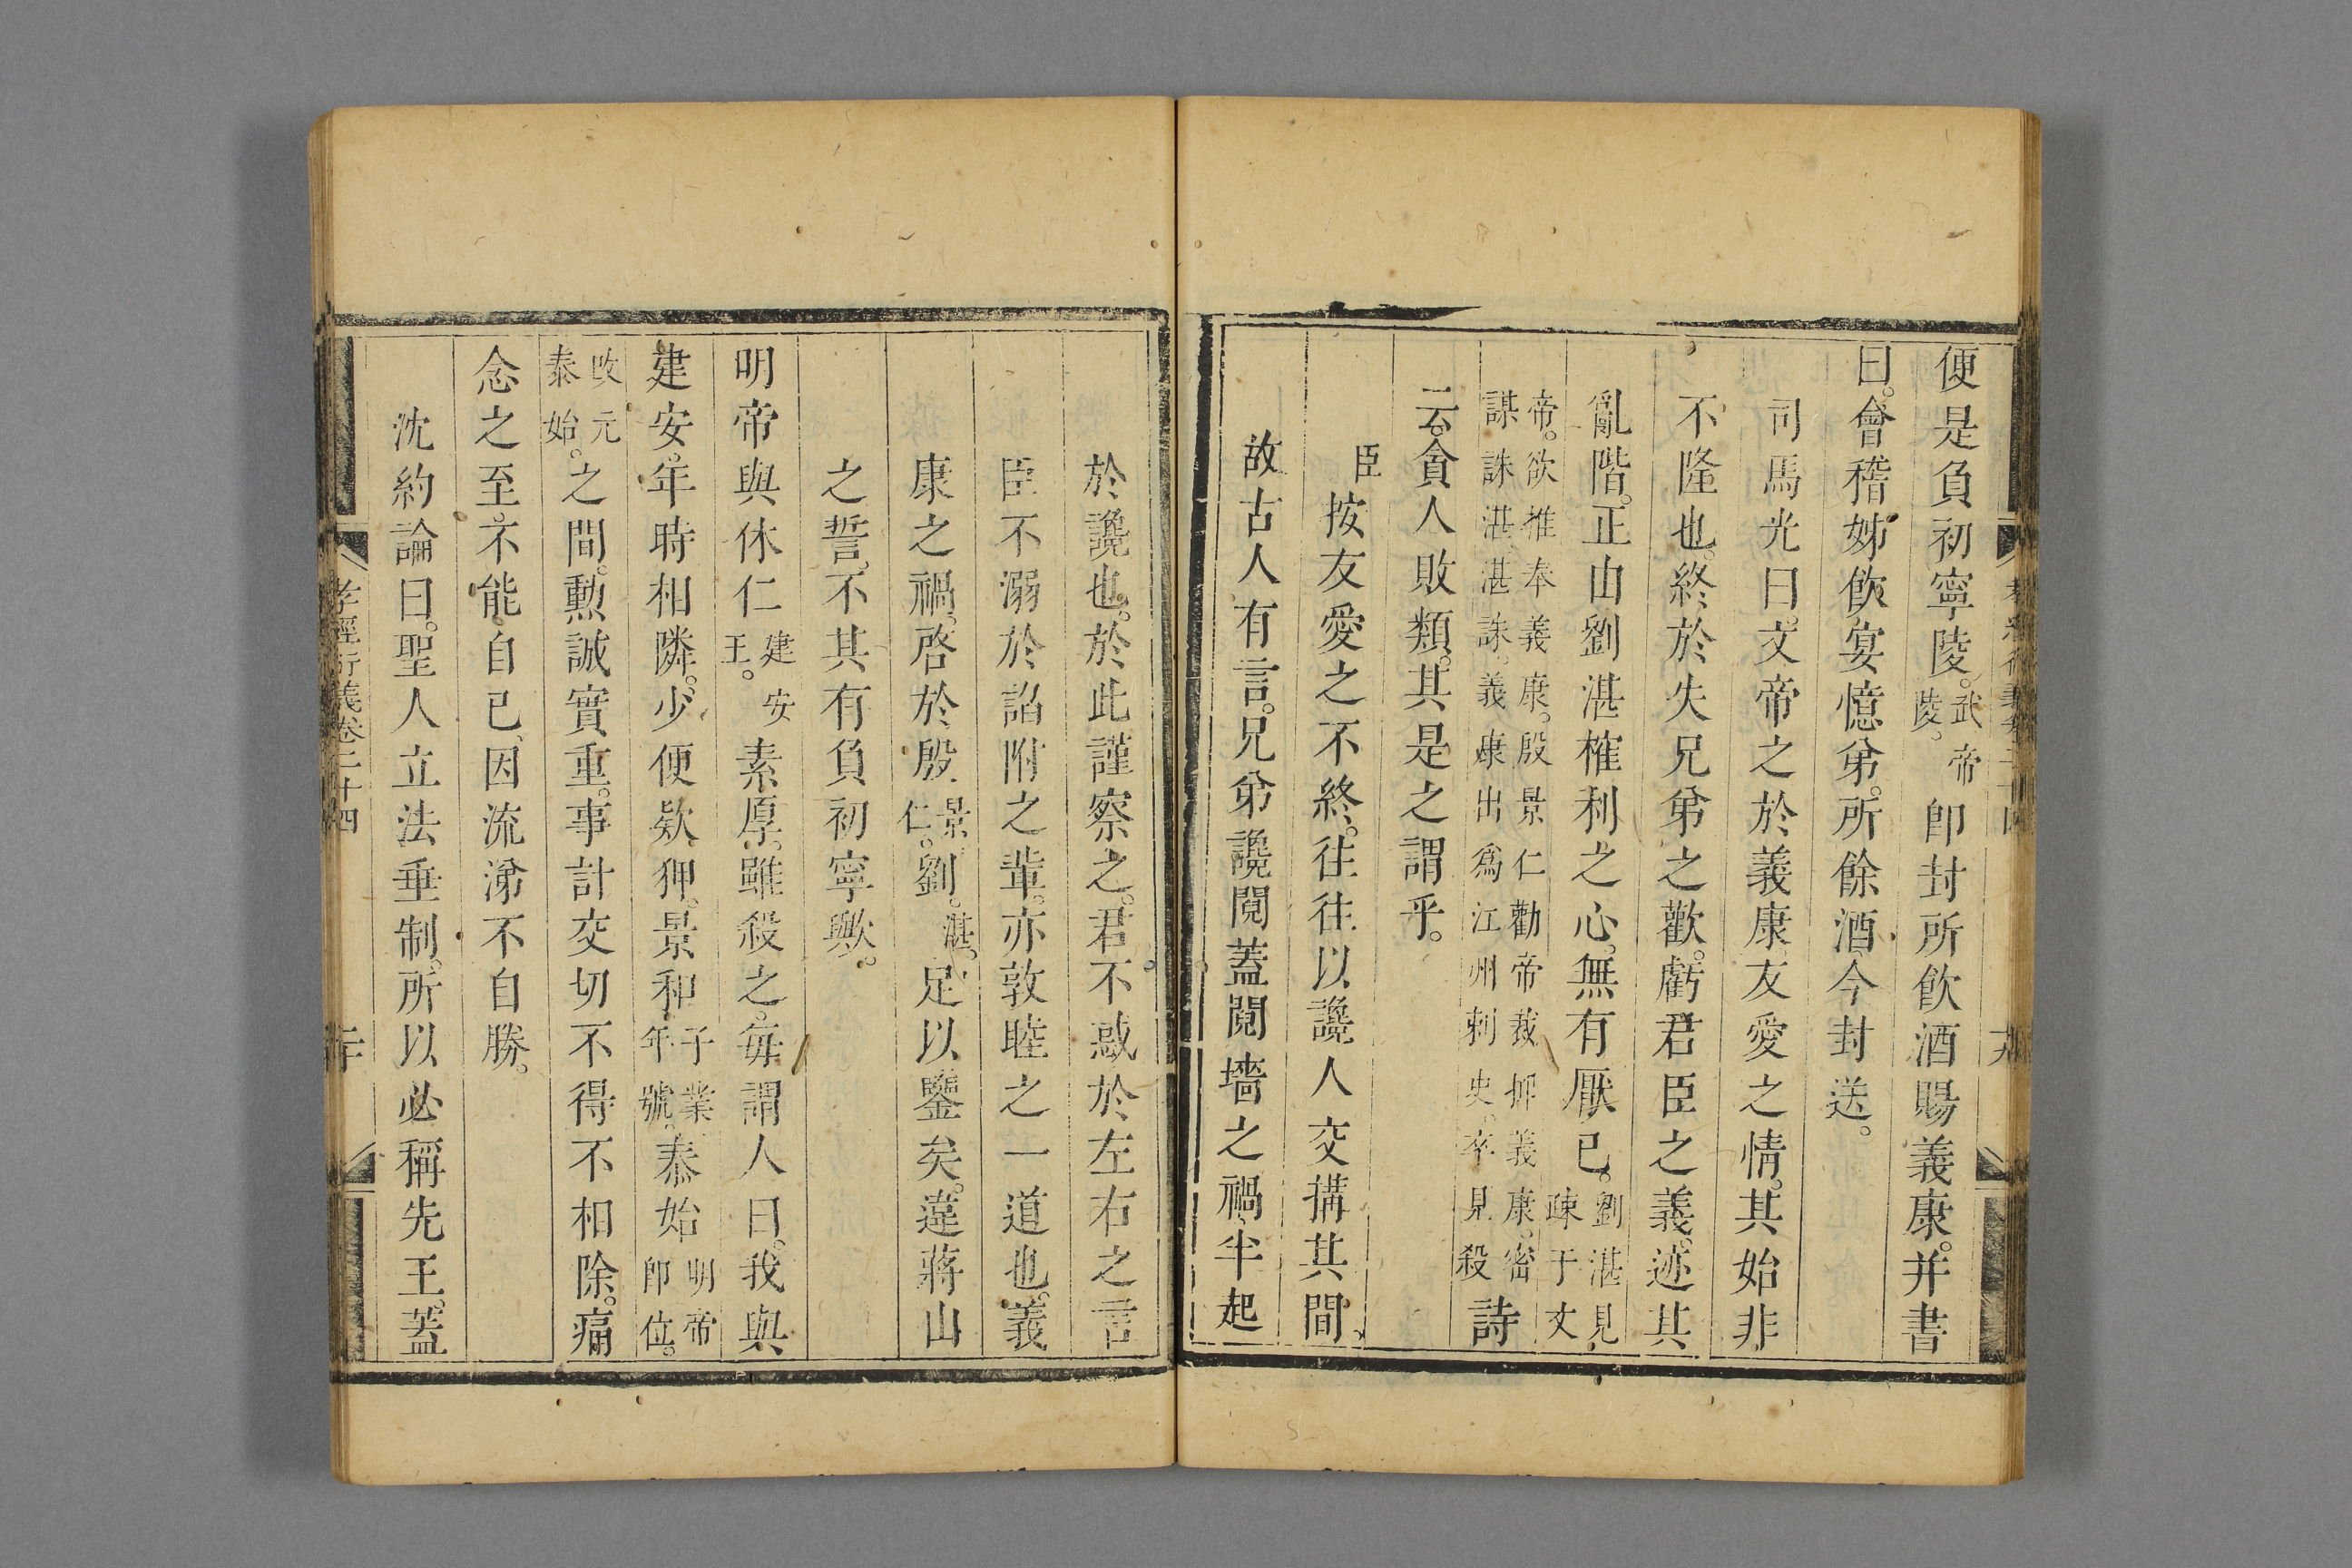 便是負初寧陵。武帝陵。卽封所飲酒賜義康。并書
曰。會稽姊飲宴憶弟。所餘酒今封送。
司馬光曰。文帝之於義康友愛之情。其始非
不隆也。終於失兄弟之歡。虧君臣之義。迹其
亂階。正由劉湛權利之心。無有厭已。劉湛見疎于文
帝。欲推奉義康。殷景仁勸帝裁抑義康。密謀誅湛。湛誅。義康出爲江州刺史。卒見殺詩
云。貪人敗類。其是之謂乎。
臣按友愛之不終。往往以讒人交搆其間。
故古人有言。兄弟讒鬩蓋鬩墻之禍。半起
於讒也。於此謹察之。君不惑於左右之言
臣不溺於諂附之輩。亦敦睦之一道也。義
康之禍。啓於殷景仁。劉湛。足以鑒矣。違蔣山
之誓。不其有負初寧歟。
明帝與休仁建安王。素厚。雖殺之。每謂人曰。我與
建安。年時相隣。少便欵狎。景和子業年號。泰始明帝卽位。
改元泰始。之間。勲誠實重。事計交切不得不相除。痛
念之至。不能自已。因流涕不自勝。
沈約論曰。聖人立法垂制。所以必稱先王。蓋
孝經衍義卷二十四
二十